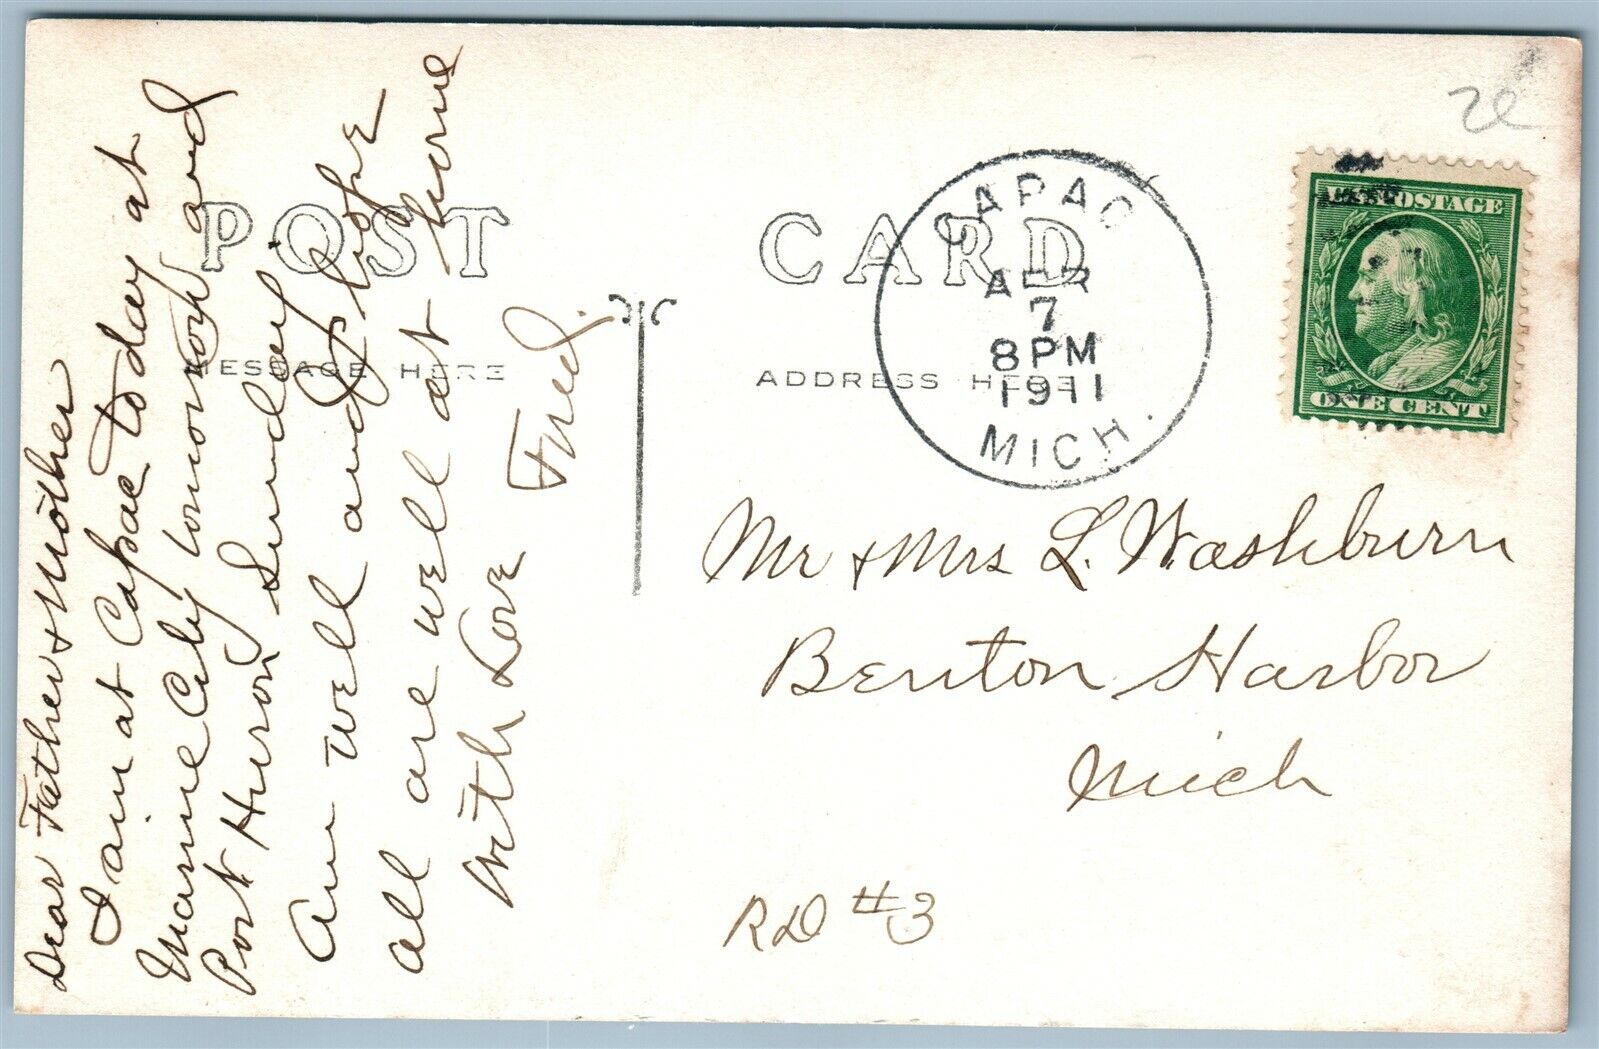 Dear Father & Mother
I am at Capac today at
Marine City tomorrow and
Port Huron Sunday
Am well and hope
all are well at home
With Love Fred.
POST CARD
MESSAGE HERE
ADDRESS HERE
CAPAC
APR
7
8 PM
1911
MICH.
U.S. POSTAGE
ONE CENT
Mr & Mrs L. Washburn
Benton Harbor
Mich
RD #3